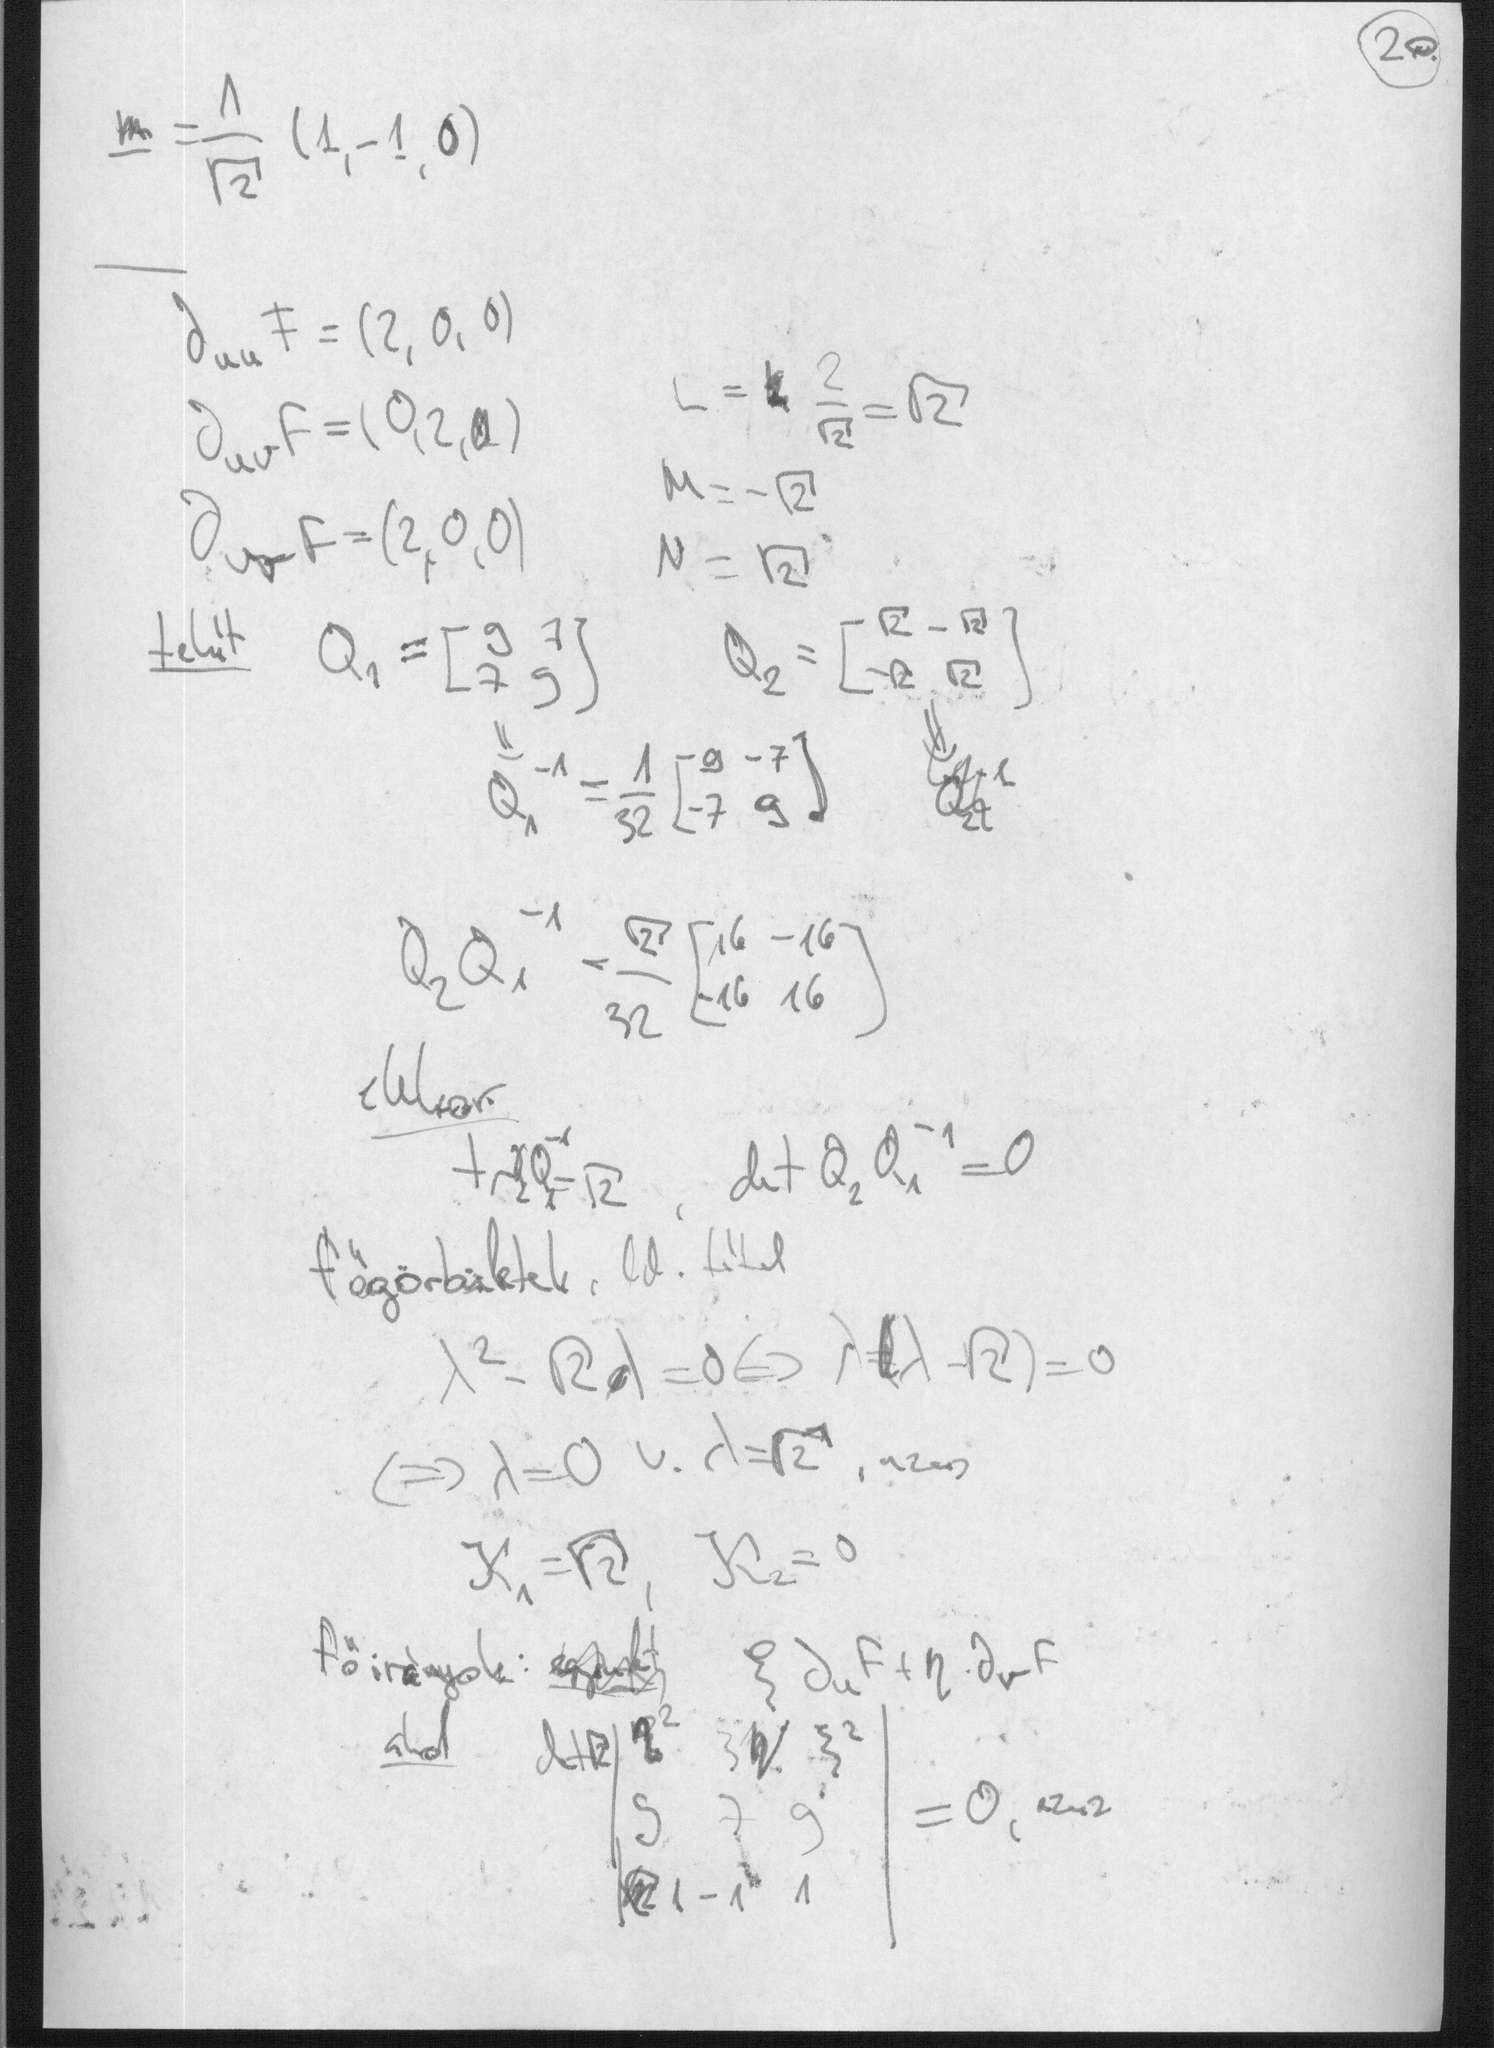 2
m = 1/√2 (1, -1, 0)
∂uu F = (2, 0, 0)
∂uv F = (0, 2, 0)
∂vv F = (2, 0, 0)
L = 2/√2 = √2
M = -√2
N = √2
tehát Q₁ = [9 7; 7 9] Q₂ = [√2 -√2; -√2 √2]
⇓
Q₁⁻¹ = 1/32 [9 -7; -7 9]
Q₂Q₁⁻¹ = √2/32 [16 -16; -16 16]
ekkor
tr Q₂Q₁⁻¹ = √2, det Q₂Q₁⁻¹ = 0
főgörbületek, ld. tétel
λ² - √2 λ = 0 ⇔ λ(λ - √2) = 0
⇔ λ = 0 v. λ = √2, azaz
K₁ = √2, K₂ = 0
főirányok: ξ ∂u F + η · ∂v F
ahol det | η² ξη ξ² |
| 9 7 9 | = 0, azaz
| 1 -1 1 |